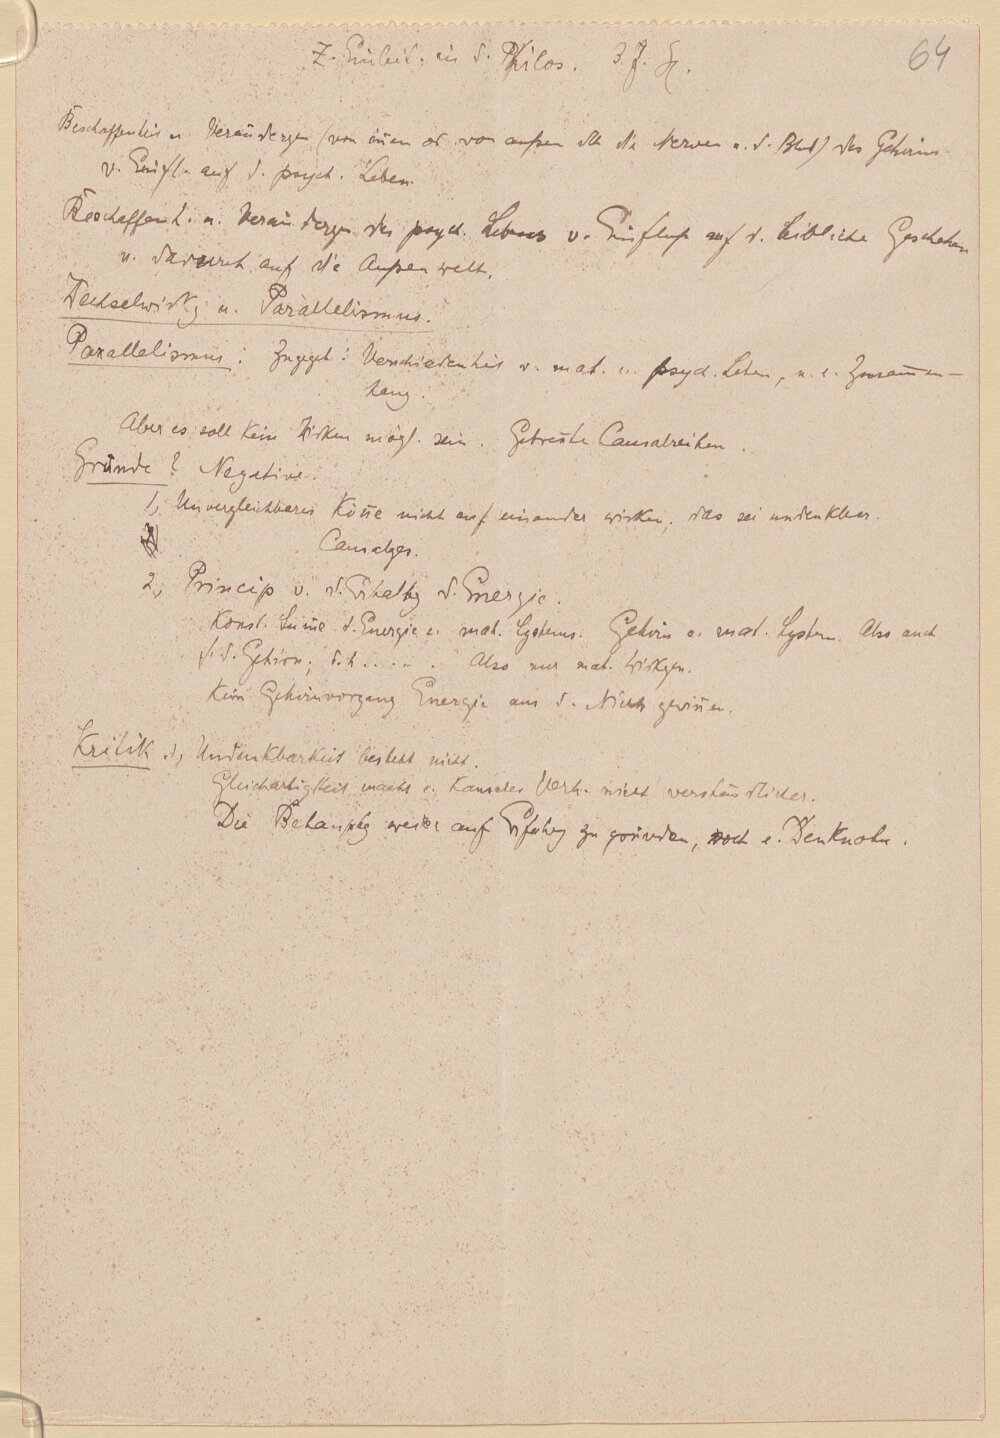 Z. Einleit. in d. Philos. 3. J. H.
64
Beschaffenheit u. Verändergen (von innen od. von außen dch die Nerven u. d. Blut) des Gehirns
v. Einfl. auf d. psych. Leben.
Beschaffenh. u. Verändergen des psych. Lebens v. Einfluß auf d. leibliche Geschehen
u. dadurch auf die Außenwelt.
Wechselwirkg u. Parallelismus.
Parallelismus: Zugegeb: Verschiedenheit v. mat. u. psych. Leben, u. e. Zusammen-
hang.
Aber es soll kein Wirken mögl. sein. Getrennte Causalreihen.
Gründe? Negative.
1, Unvergleichbares könne nicht auf einander wirken, das sei undenkbar.
Causalges.
2, Princip v. d. Erhaltg d. Energie.
Konst. Summe d. Energie e. mat. Systems. Gehirn e. mat. System. Also auch
f. d. Gehirn; d. h. . . . . Also nur mat. Wirkgen.
Kein Gehirnvorgang Energie aus d. Nichts gewinnen.
Kritik 1, Undenkbarkeit besteht nicht.
Gleichartigkeit macht e. kausales Verh. nicht verständlicher.
Die Behauptg weder auf Erfahrg zu gründen, noch e. Denknotw.